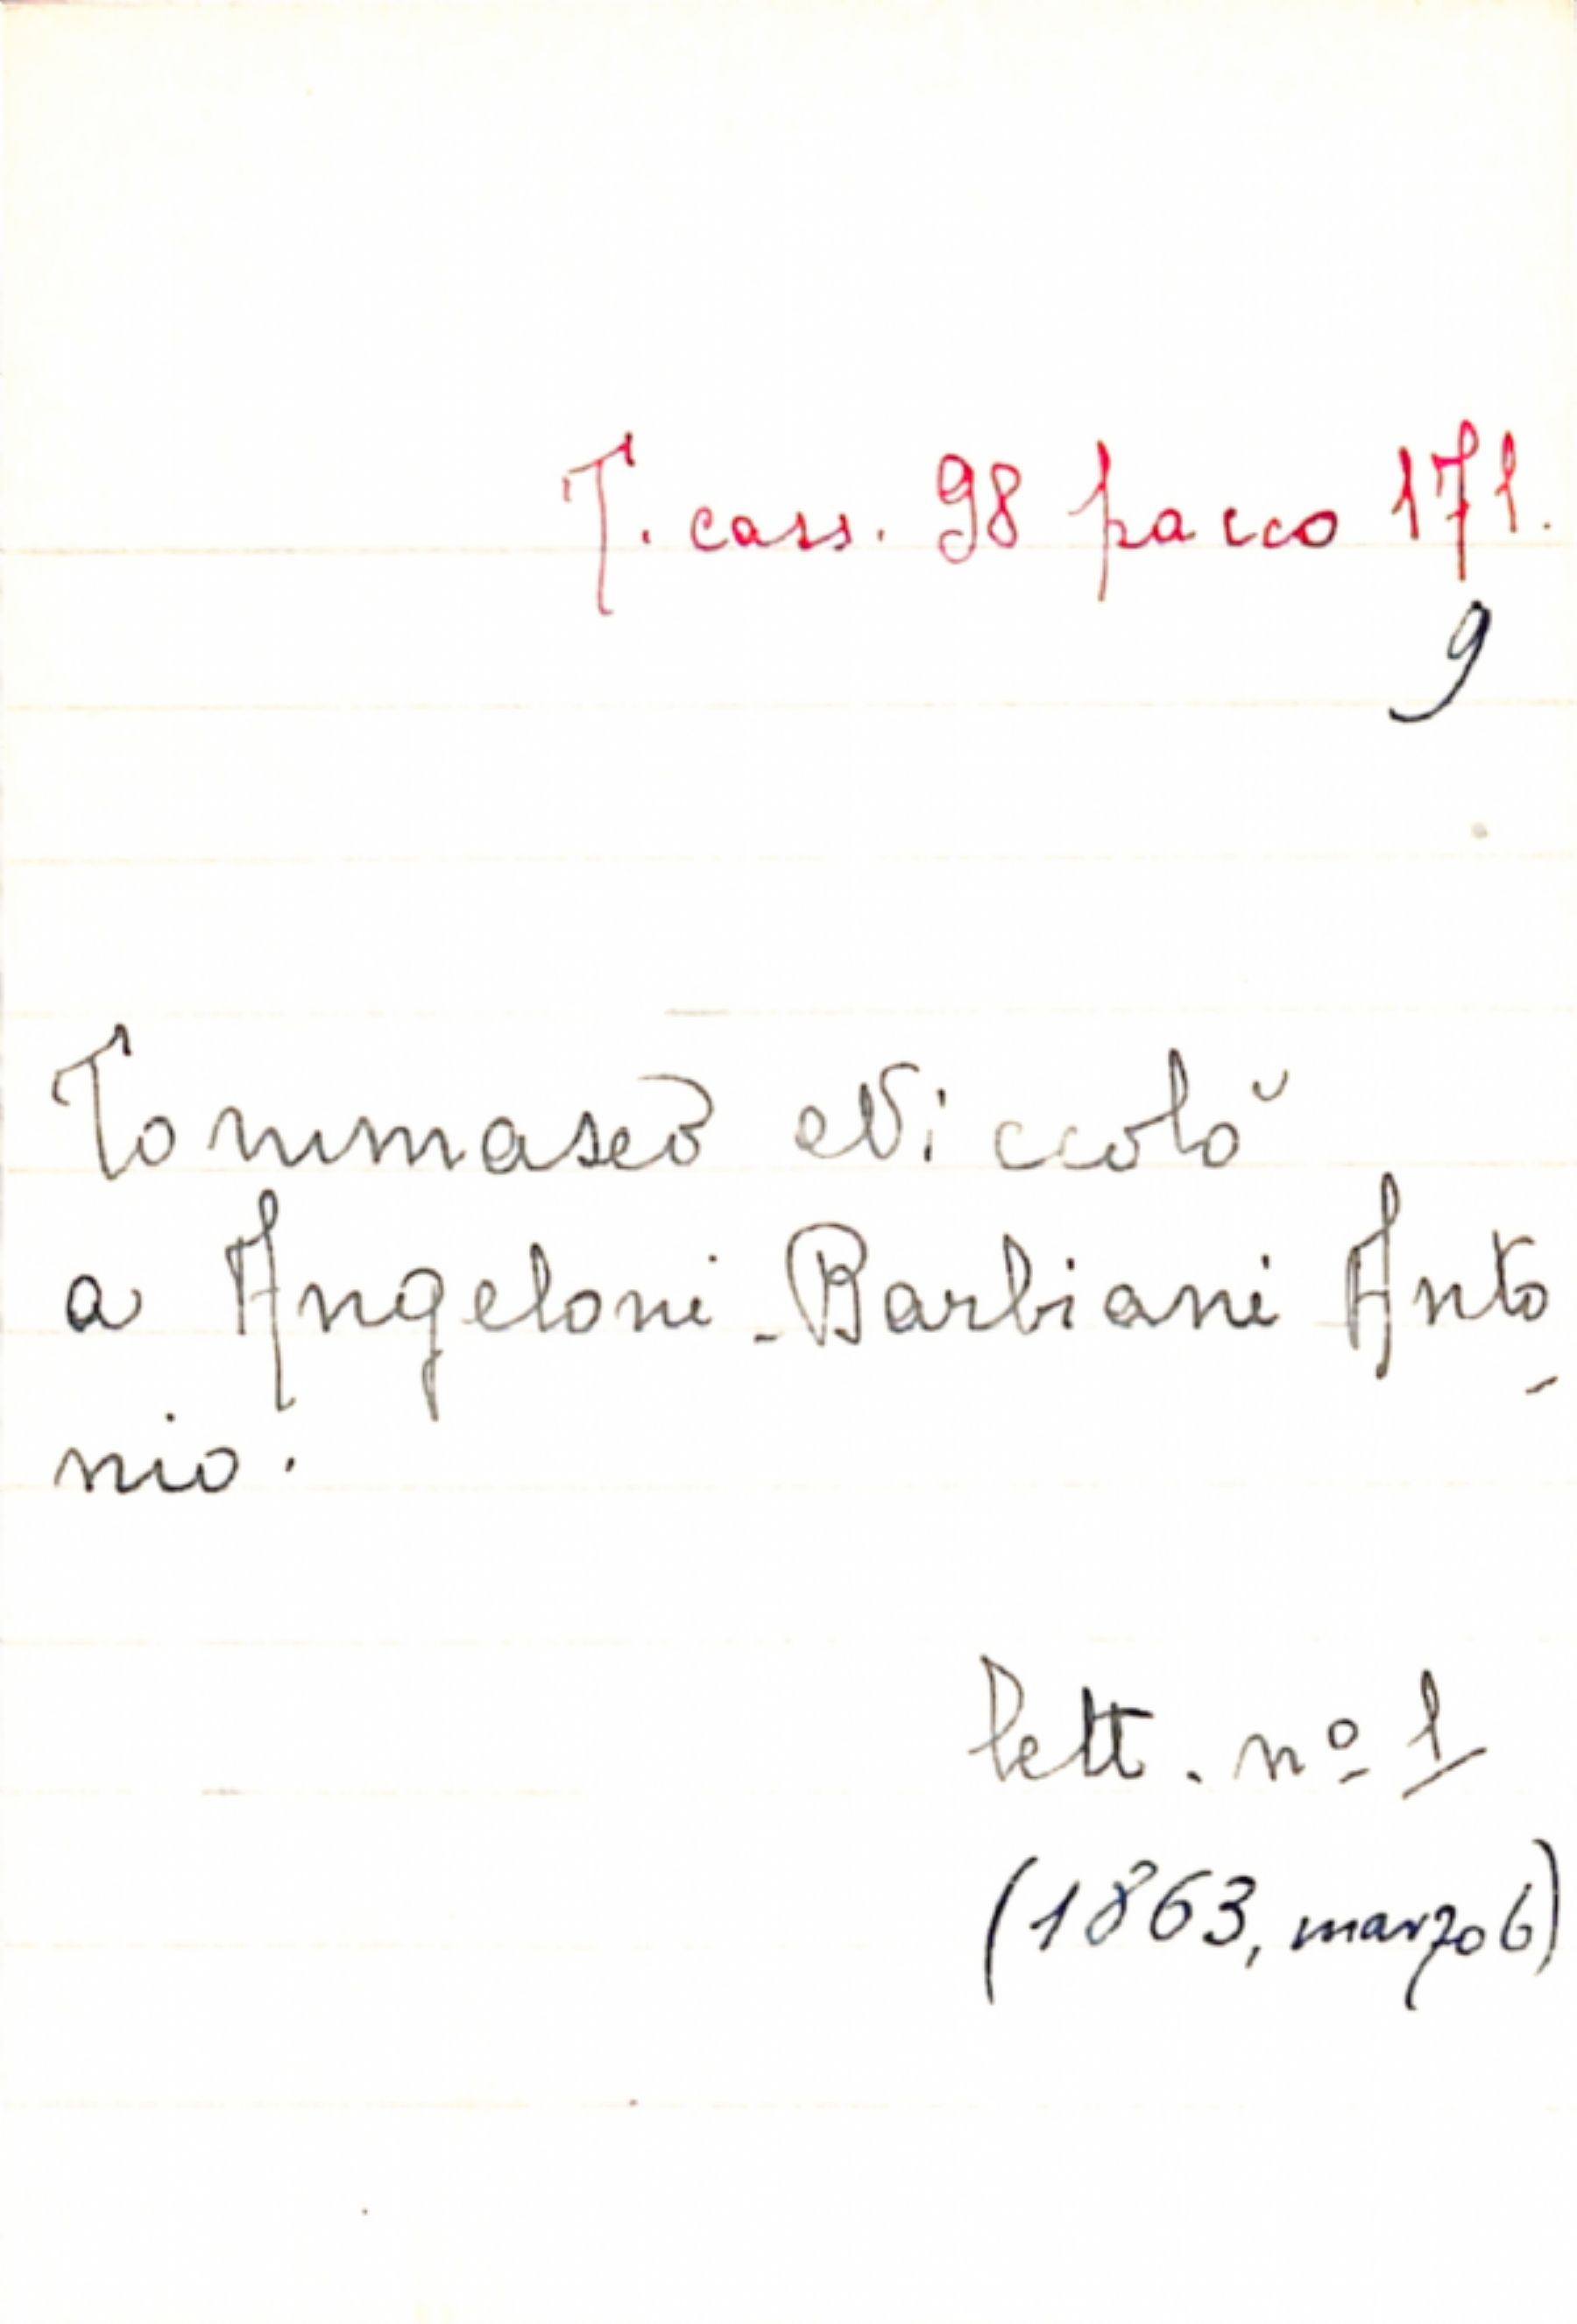 T. cass. 98 pacco 171.
9
Tommaseo Niccolò
a Angeloni-Barbiani Anto-
nio.
lett. nº 1
(1863, marzo 6)